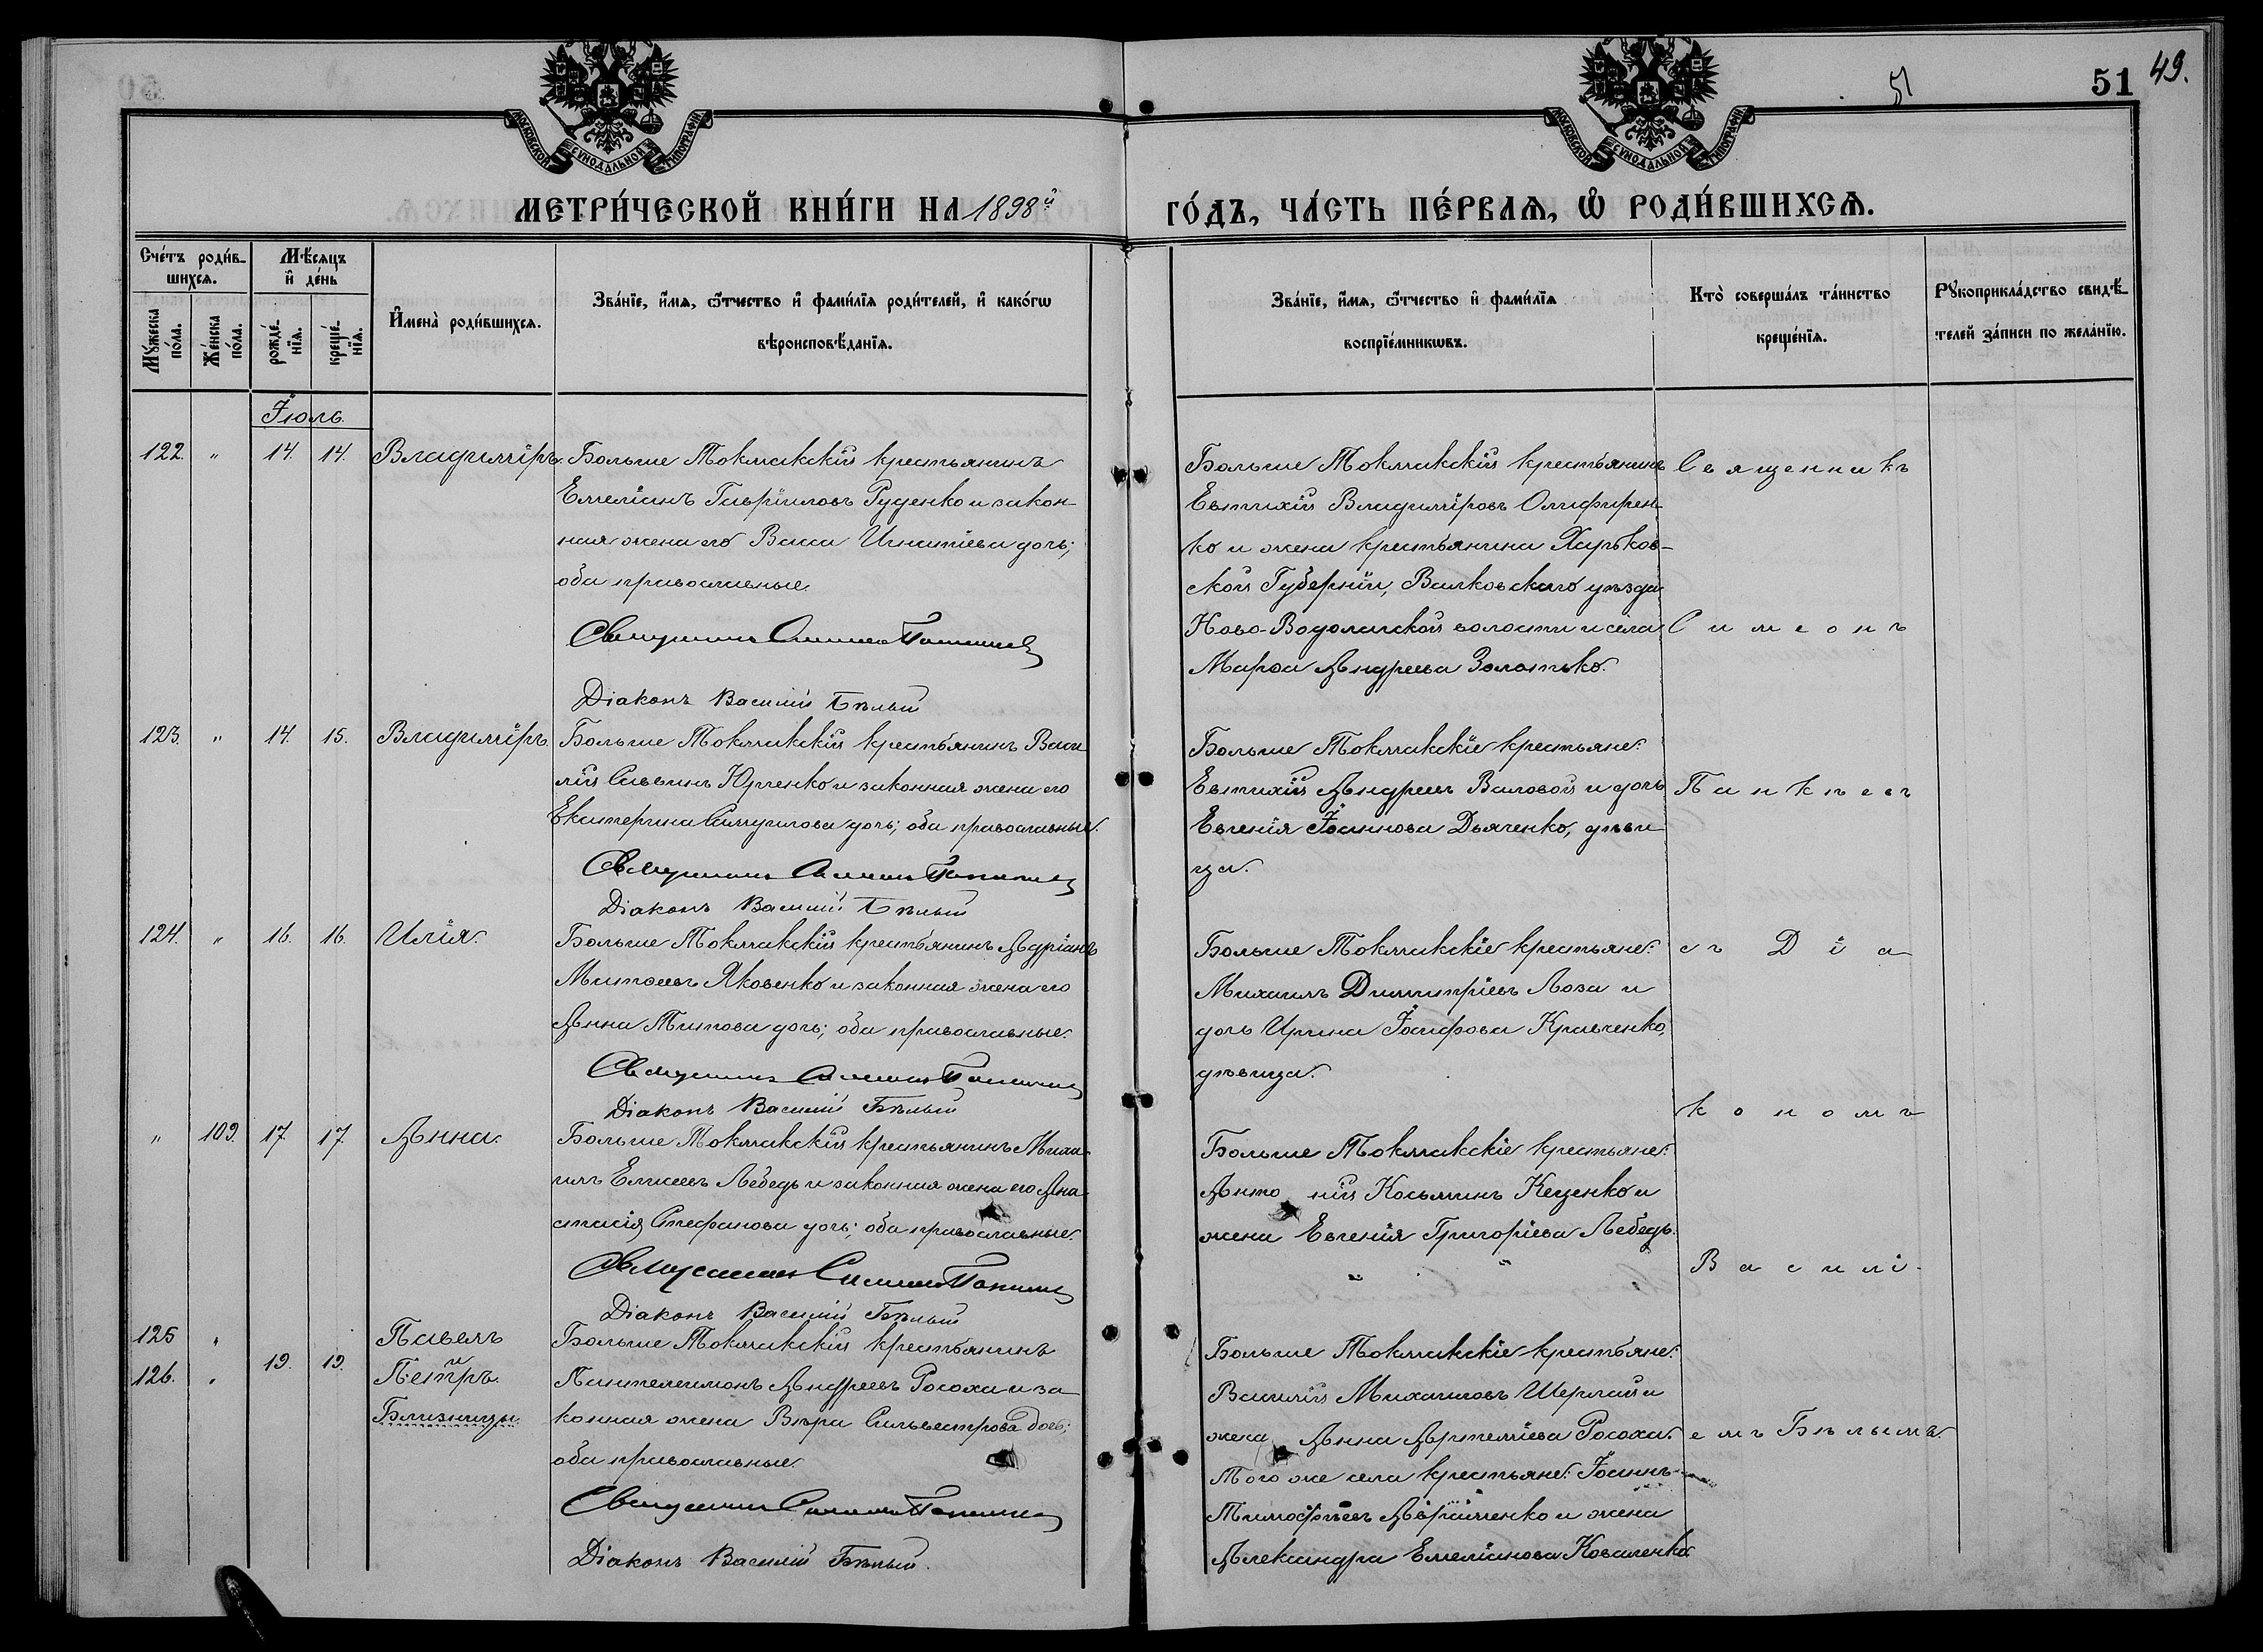 51
49.
51
МОСКОВСКОЙ СѴНОДАЛЬНОЙ ТИПОГРАФІИ
МОСКОВСКОЙ СѴНОДАЛЬНОЙ ТИПОГРАФІИ
МЕТРИ́ЧЕСКОЙ КНИ́ГИ НА 1898й
ГО́ДЪ, ЧА́СТЬ ПЕ́РВАѦ, Ѽ РОДИ́ВШИХСѦ.
Сче́тъ роди́в-
шихсѧ.
Мꙋ́жеска по́ла.
Же́нска по́ла.
Мѣ́сѧцъ
и҆ де́нь
рожде́-нїѧ.
креще́-нїѧ.
И҆мена̀ роди́вшихсѧ.
Зва́нїе, и҆́мѧ, ѻ҆́тчество и҆ фами́лїѧ роди́телей, и҆ како́гѡ
вѣроисповѣ́данїѧ.
Зва́нїе, и҆́мѧ, ѻ҆́тчество и҆ фами́лїѧ
воспрїе́мникѡвъ.
Кто̀ соверша́лъ та́инство
креще́нїѧ.
Рꙋкоприкла́дство свидѣ́-
телей за́писи по жела́нїю.
Іюль.
122. " 14. 14. Владиміръ. Больше Токмакскій крестьянинъ
Емеліанъ Гавріиловъ Руденко и закон-
ная жена его Васса Игнатіева дочь;
оба православные.
Діаконъ Василій Бѣлый
Больше Токмакскій крестьянинъ
Евтихій Владиміровъ Олифирен-
ко и жена крестьянина Харьков-
ской Губерніи, Валковскаго уѣзда
Ново-Водолажской волости и села
Марѳа Андреева Золотько.
123. " 14. 15. Владиміръ. Больше Токмакскій крестьянинъ Васи
лій Саввинъ Юрченко и законная жена его
Екатерина Самуилова дочь; оба православные.
Діаконъ Василій Бѣлый
Больше Токмакскіе крестьяне:
Евтихій Андреевъ Валовой и дочь
Евгенія Іоаннова Дьяченко, дѣви
ца.
124. " 16. 16. Илія. Больше Токмакскій крестьянинъ Адріанъ
Матѳеевъ Яковенко и законная жена его
Анна Титова дочь; оба православные.
Діаконъ Василій Бѣлый
Больше Токмакскіе крестьяне:
Михаилъ Димитріевъ Лоза и
дочь Ирина Іосифова Кравченко,
дѣвица.
" 109. 17. 17. Анна. Больше Токмакскій крестьянинъ Миха-
илъ Елисеевъ Лебедь и законная жена его Ана-
стасія Стефанова дочь; оба православные.
Діаконъ Василій Бѣлый
Больше Токмакскіе крестьяне:
Анто ній Косьминъ Кеценко и
жена Евгенія Григоріева Лебедь.
125 " Павелъ
и
126. " 19. 19. Петръ.
Близнецы.
Больше Токмакскій крестьянинъ
Пантелеимонъ Андреевъ Росоха и за
конная жена Вѣра Сильвестрова дочь;
оба православные.
Діаконъ Василій Бѣлый.
Больше Токмакскіе крестьяне:
Василій Михаиловъ Шерлай и
жена Анна Артеміева Росоха.
Того же села крестьяне: Іоаннъ
Тимоѳеевъ Авраменко и жена
Александра Емеліанова Коваленко
Священникъ
Симеонъ
Панкѣевъ
съ Діа
кономъ
Василі-
емъ Бѣлымъ.